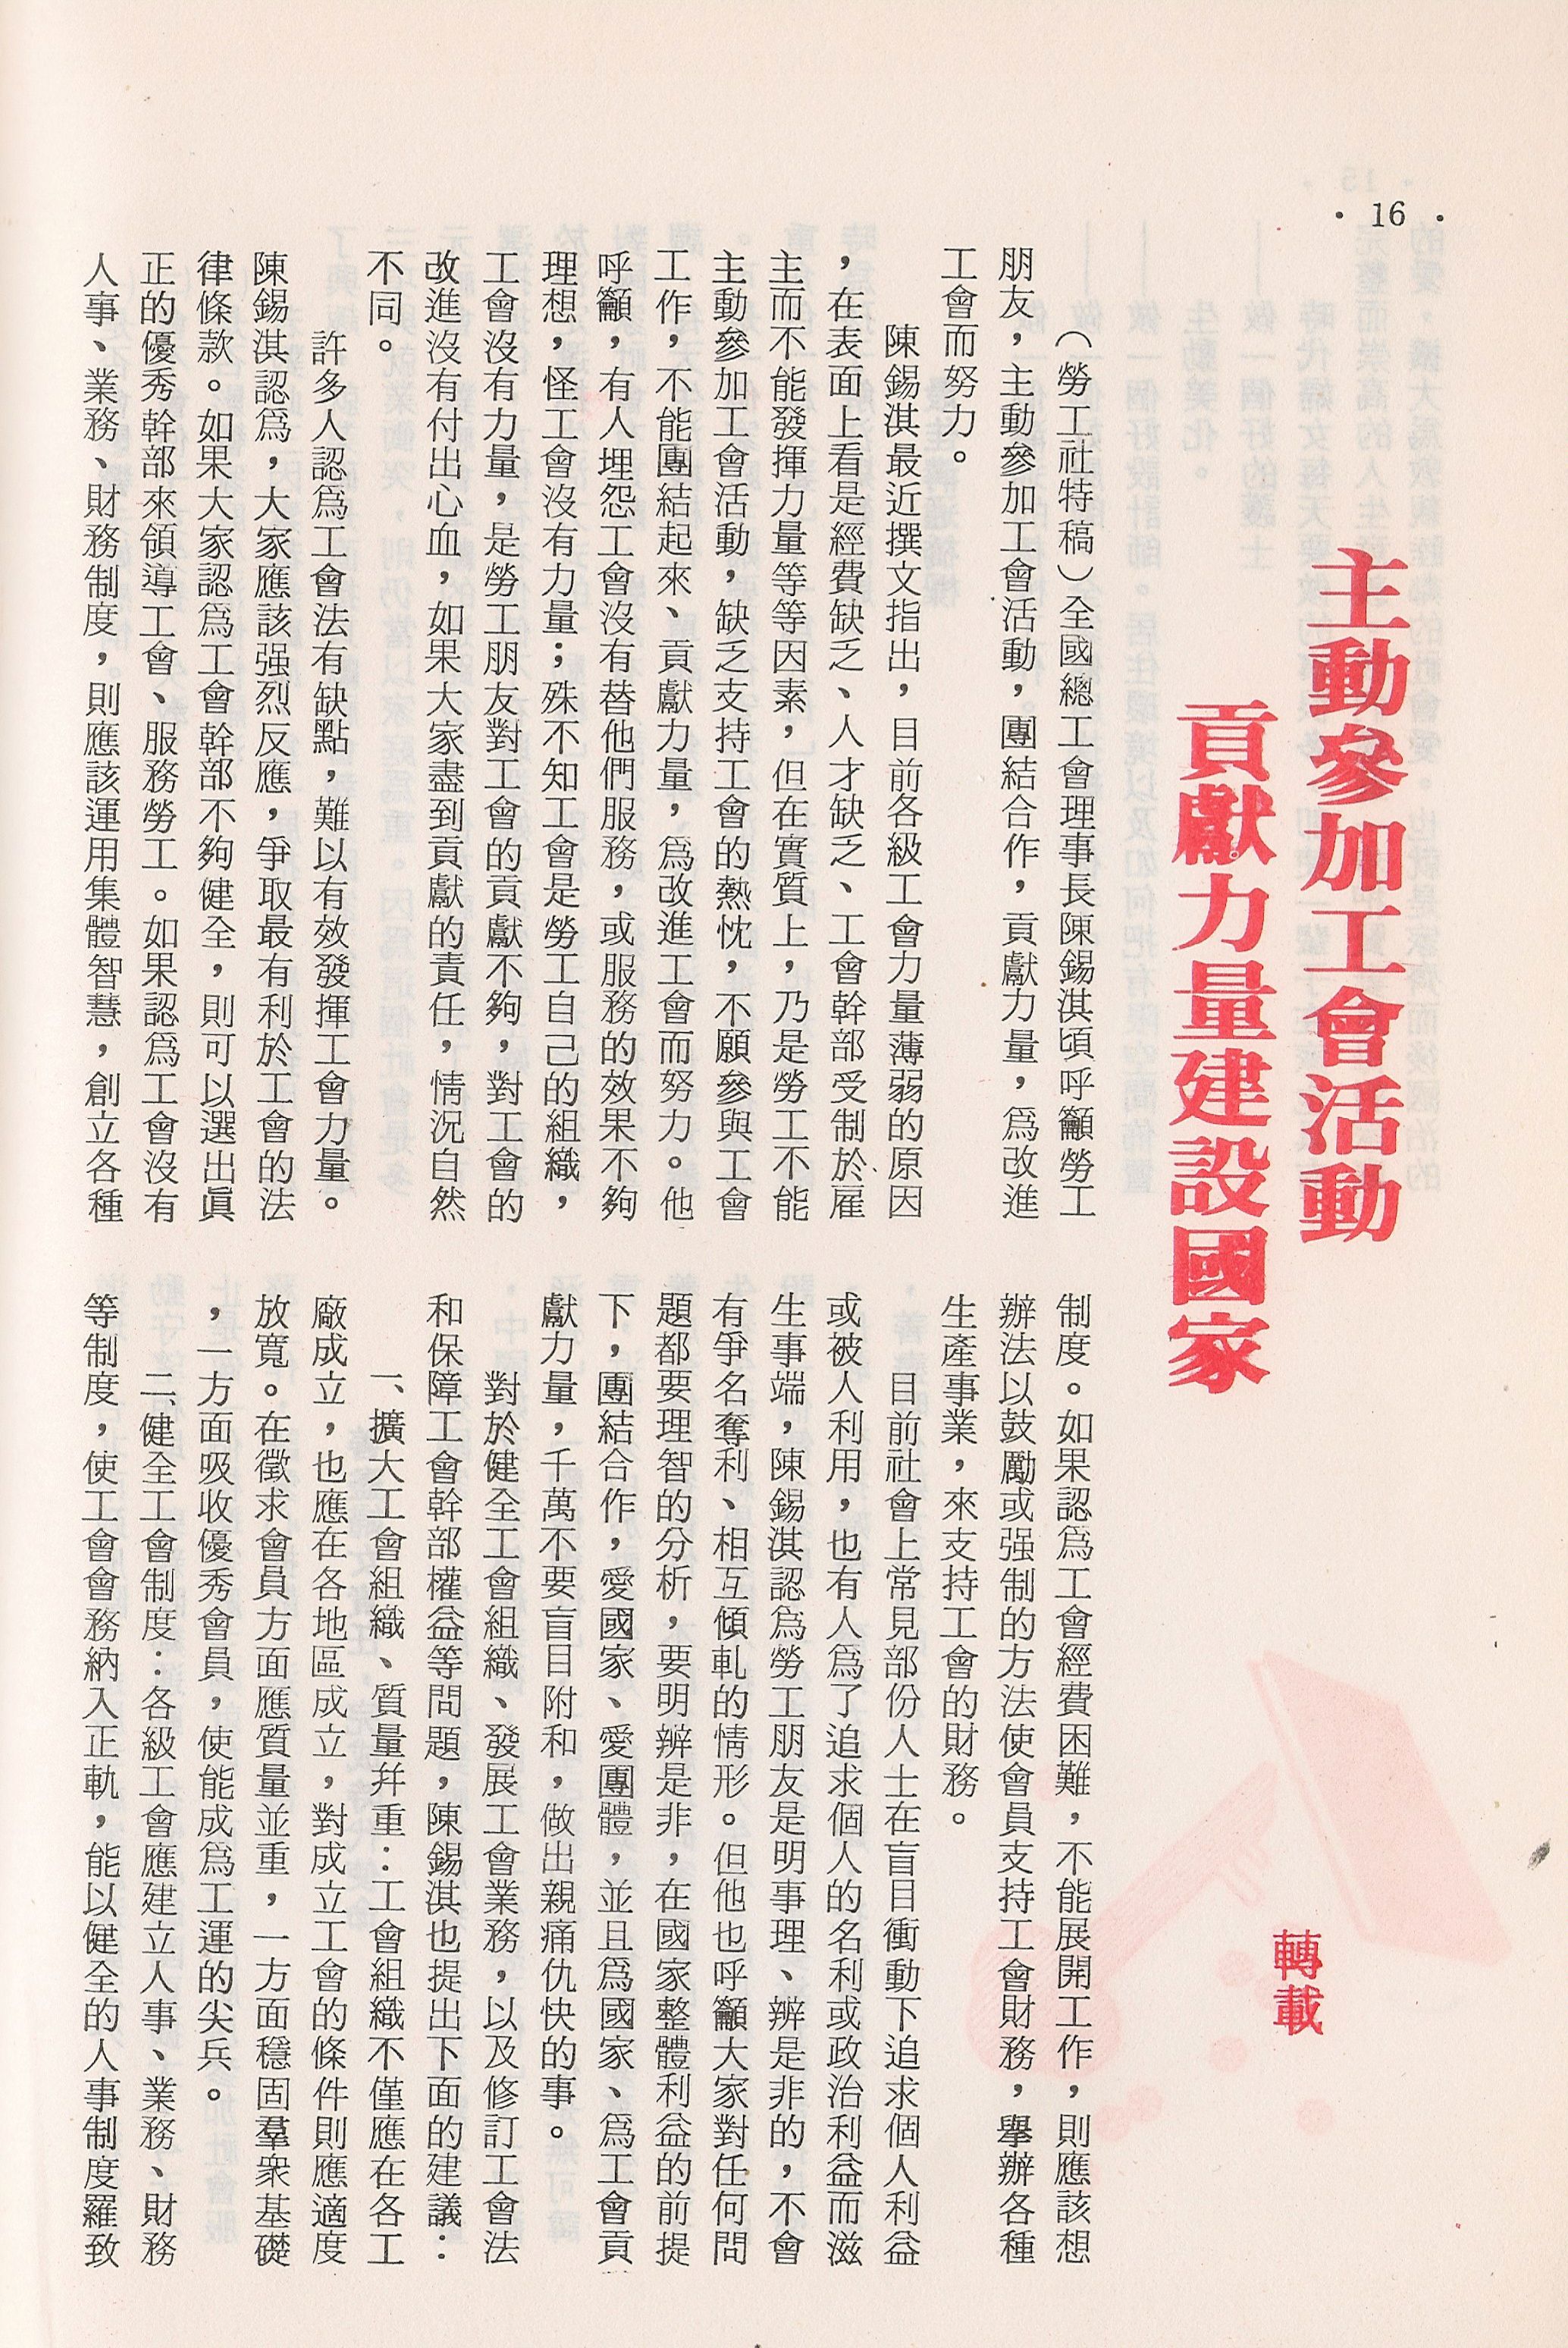 • 16 •
主動參加工會活動
貢獻力量建設國家
轉載
（勞工社特稿）全國總工會理事長陳錫淇頃呼籲勞工
朋友，主動參加工會活動，團結合作，貢獻力量，爲改進
工會而努力。
陳錫淇最近撰文指出，目前各級工會力量薄弱的原因
，在表面上看是經費缺乏、人才缺乏、工會幹部受制於雇
主而不能發揮力量等等因素，但在實質上，乃是勞工不能
主動參加工會活動，缺乏支持工會的熱忱，不願參與工會
工作，不能團結起來、貢獻力量，爲改進工會而努力。他
呼籲，有人埋怨工會沒有替他們服務，或服務的效果不夠
理想，怪工會沒有力量；殊不知工會是勞工自己的組織，
工會沒有力量，是勞工朋友對工會的貢獻不夠，對工會的
改進沒有付出心血，如果大家盡到貢獻的責任，情況自然
不同。
許多人認爲工會法有缺點，難以有效發揮工會力量。
陳錫淇認爲，大家應該强烈反應，爭取最有利於工會的法
律條款。如果大家認爲工會幹部不夠健全，則可以選出眞
正的優秀幹部來領導工會、服務勞工。如果認爲工會沒有
人事、業務、財務制度，則應該運用集體智慧，創立各種
制度。如果認爲工會經費困難，不能展開工作，則應該想
辦法以鼓勵或强制的方法使會員支持工會財務，舉辦各種
生產事業，來支持工會的財務。
目前社會上常見部份人士在盲目衝動下追求個人利益
或被人利用，也有人爲了追求個人的名利或政治利益而滋
生事端，陳錫淇認爲勞工朋友是明事理、辨是非的，不會
有爭名奪利、相互傾軋的情形。但他也呼籲大家對任何問
題都要理智的分析，要明辨是非，在國家整體利益的前提
下，團結合作，愛國家、愛團體，並且爲國家、爲工會貢
獻力量，千萬不要盲目附和，做出親痛仇快的事。
對於健全工會組織、發展工會業務，以及修訂工會法
和保障工會幹部權益等問題，陳錫淇也提出下面的建議：
一、擴大工會組織、質量幷重：工會組織不僅應在各工
廠成立，也應在各地區成立，對成立工會的條件則應適度
放寬。在徵求會員方面應質量並重，一方面穩固羣衆基礎
，一方面吸收優秀會員，使能成爲工運的尖兵。
二、健全工會制度：各級工會應建立人事、業務、財務
等制度，使工會會務納入正軌，能以健全的人事制度羅致